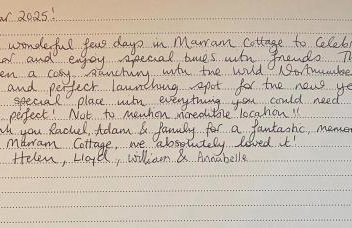 ar 2025!
wonderful few days in Marram Cottage to Celebr
and enjoy special times with friends. Th
en a cosy sanctuary with the wild Northumber
and perfect launching spot for the new ye
special place with everything you could need
perfect! Not to mention incredible location!!
nk you Rachel, Adam & family for a fantastic, memor
Marram Cottage, we absolutely loved it!
Helen, Lloyd, William & Annabelle